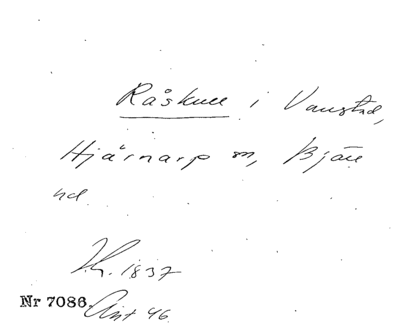 Råskull i Vanstad,
Hjärnarp sn, Bjäre
hd.
H. 1837
Nr 7086. Ant 46